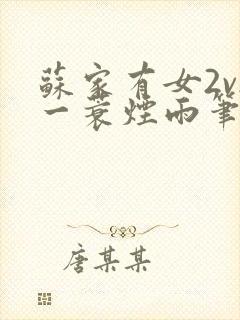 蘇家有女2v
一蓑煙雨筆
唐某某